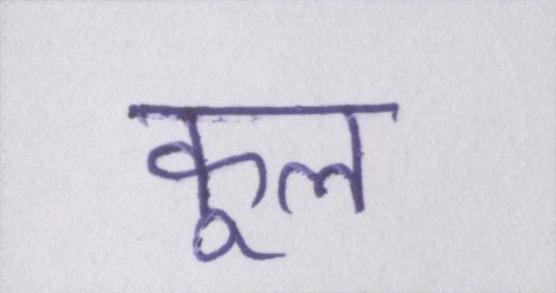 कूल